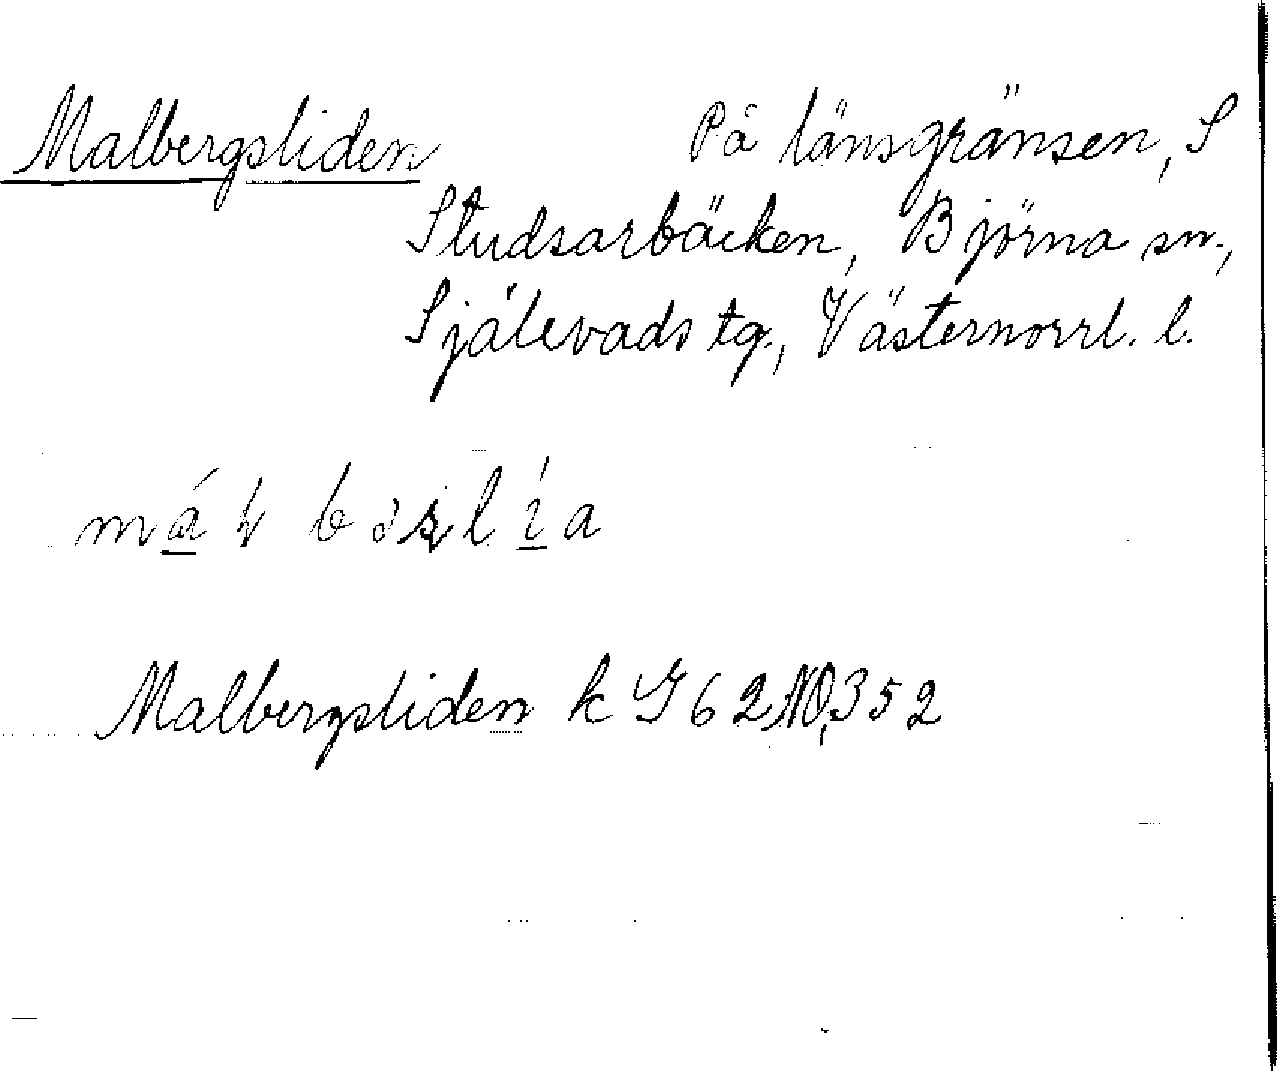 Malbergsliden På länsgränsen, S
Studsarbäcken, Björna sn.,
Själevads tg., Västernorrl. l.
Malbergsliden k Y 62 NO, 352